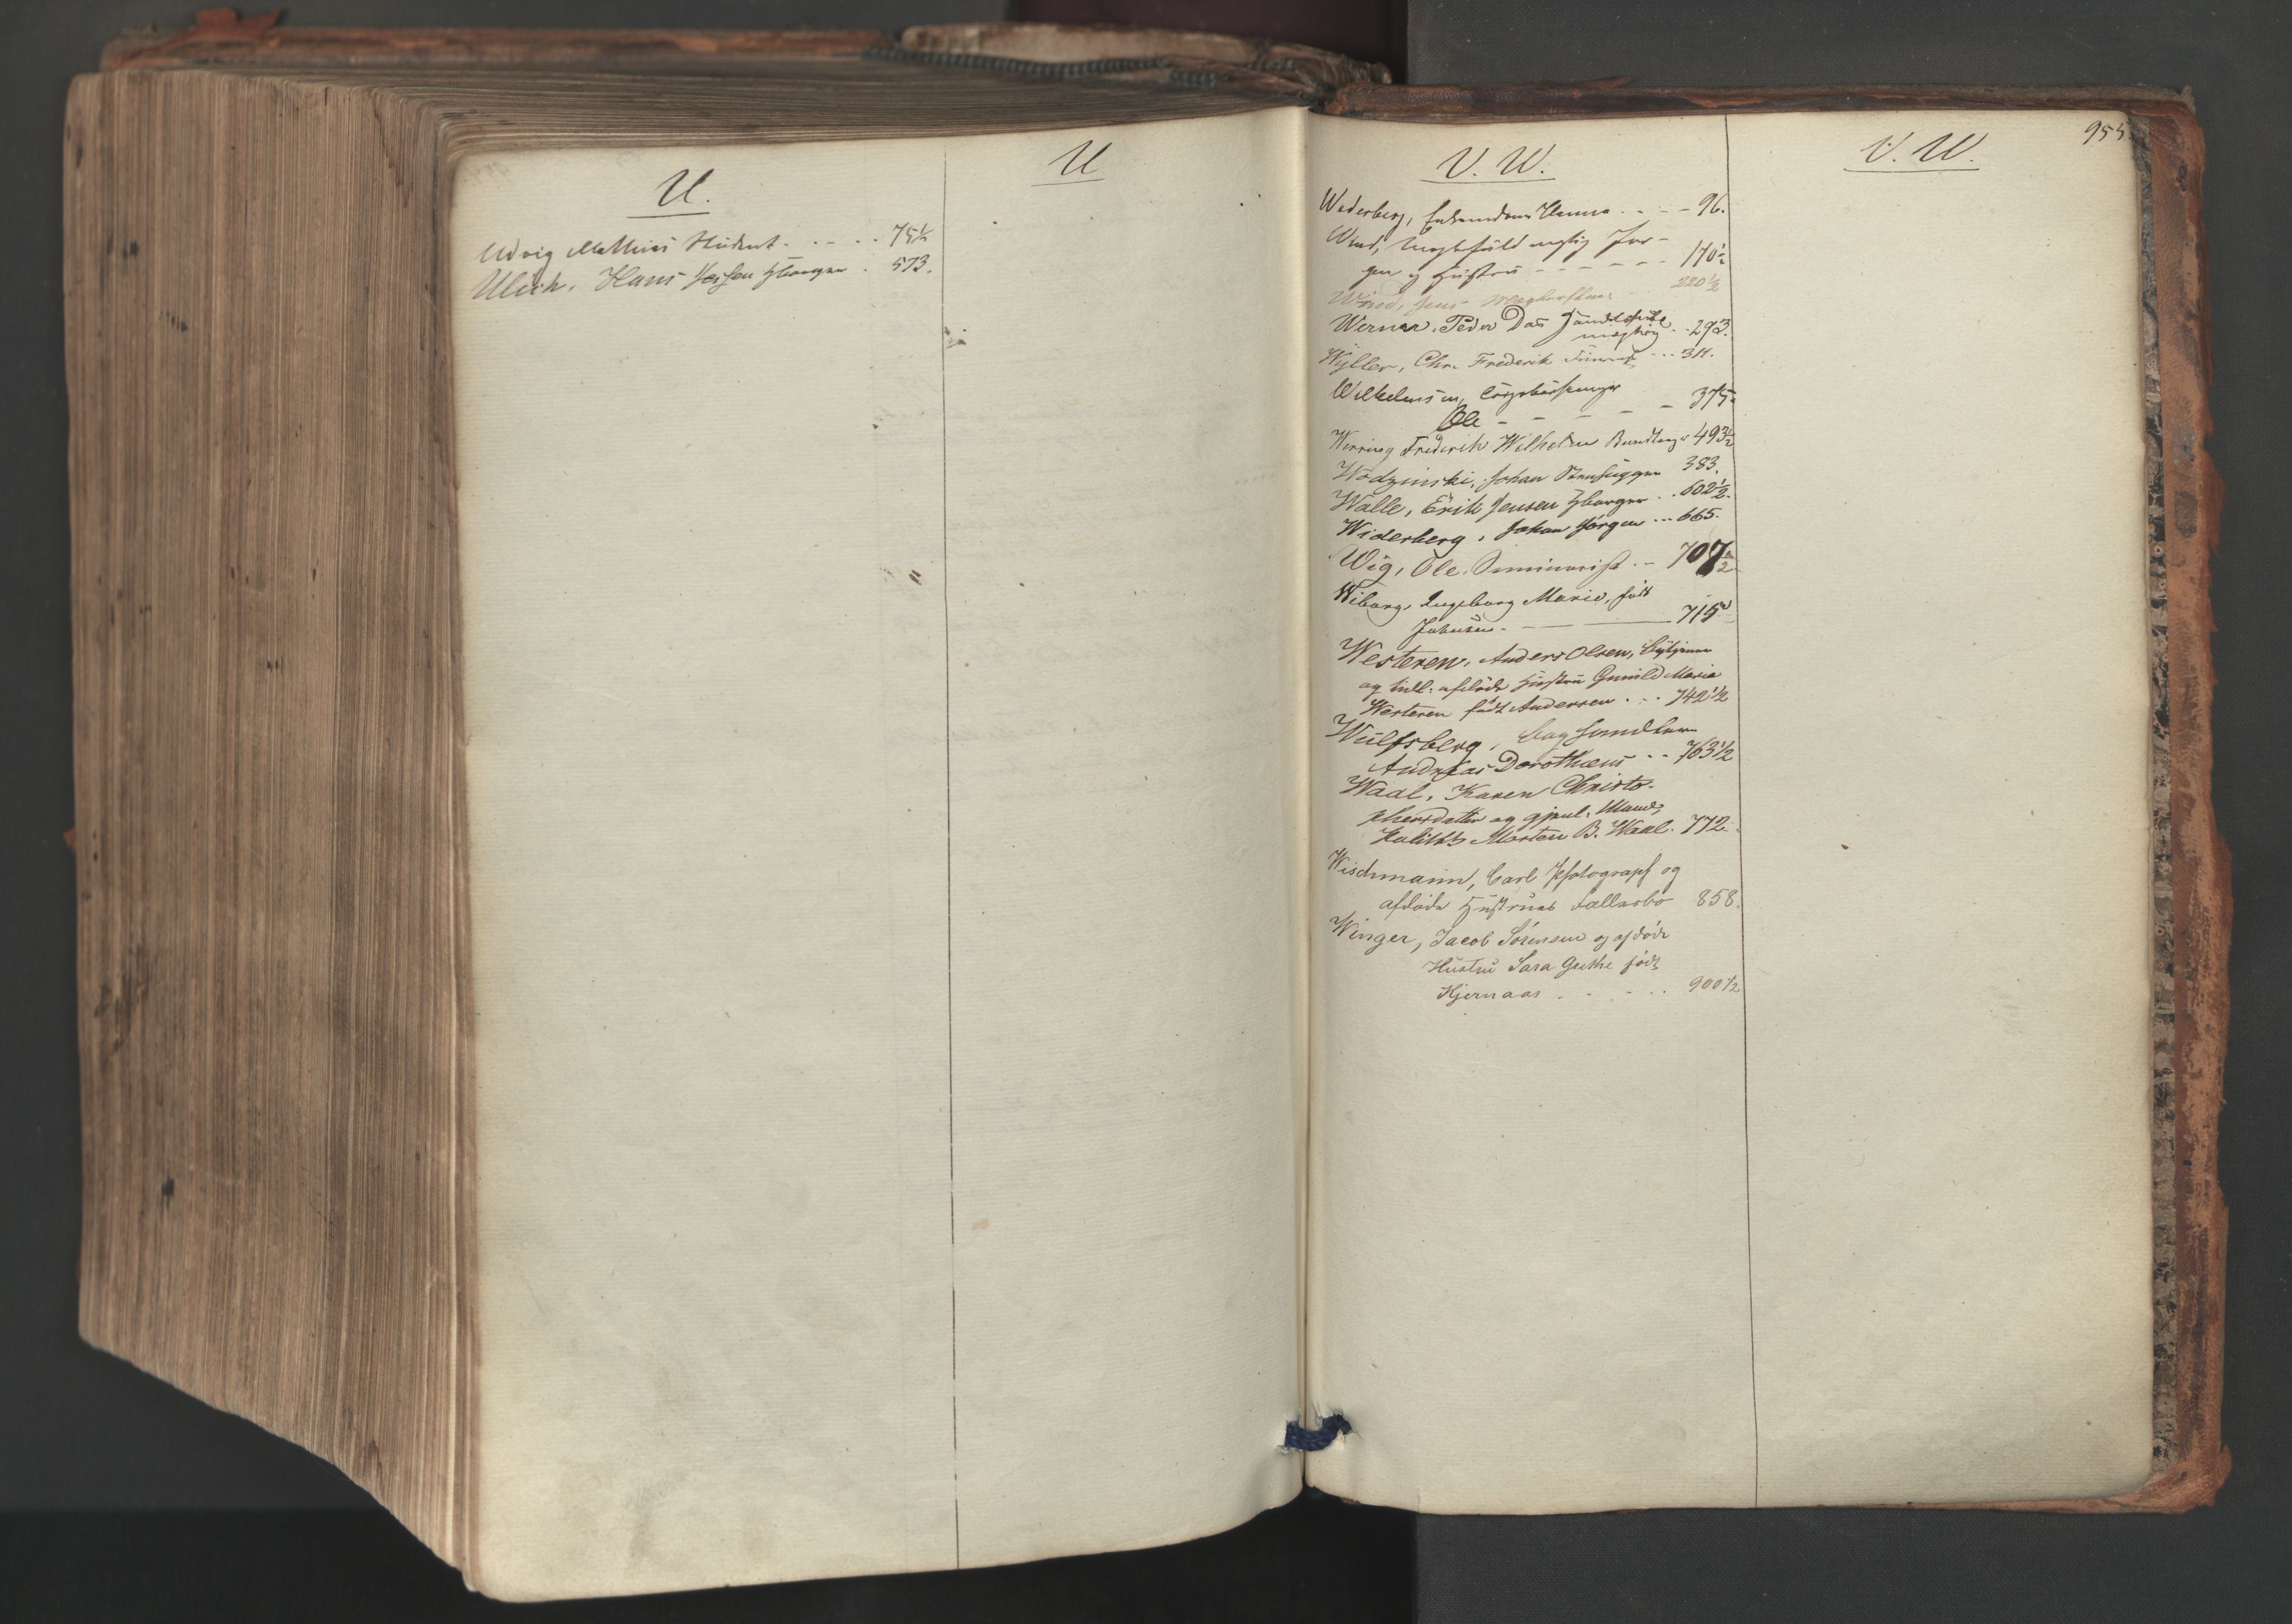 U.
Udvig Mathias Student . . . . . 75½
Ulich, Hans Jensen Hborger . 573.
U
V. W.
Wederberg, Hanna . . . . 96.
Wind,
og Hustru - - - - - - 170½
Wind, Jens 220½
Werner, Peder Das 293.
Wyller, Chr. Frederik . . . 311.
Wilhelmsen,
Ole - - - - - 375.
Werring Frederik Wilhelm 493½
Wodzinski, Johan Stenhugger 383.
Walle, Erik Jensen Hborger . . 602½.
Widerberg, Johan Jørgen ... 665.
Wig, Ole. Seminarist . - 707½
Wiborg, Ingeborg Marie, født
Johnsen - 715
Westeren, Anders Olsen,
og afdøde Hustru Gunild Marie
Westeren født Andersen . . . 742½
Wulfsberg,
Andreas Dorotheus - - 763½
Waal, Karen Christo-
phersdatter og gjenl. Mand,
Politbt Morten B. Waal. 772.
Wischmann, Carl Photograph og
afdøde Hustrues Fællesbo 858.
Winger, Jacob Sørensen og afdøde
Hustru Sara Gurthe født
Kjernaas . . . . . 900½
V. W.
955